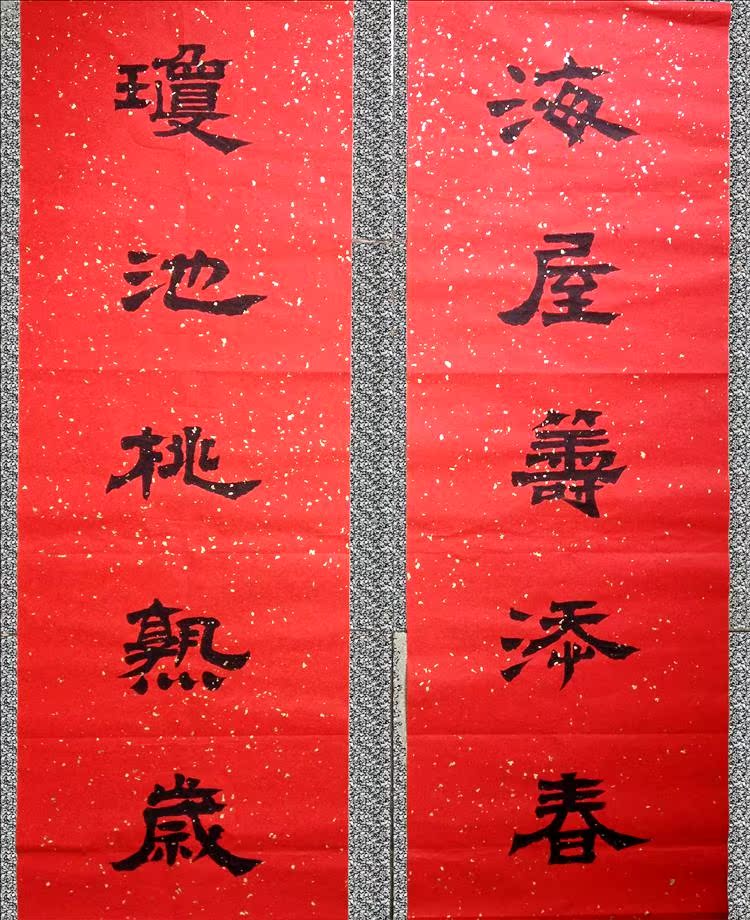 海屋籌添春
瓊池桃熟歲